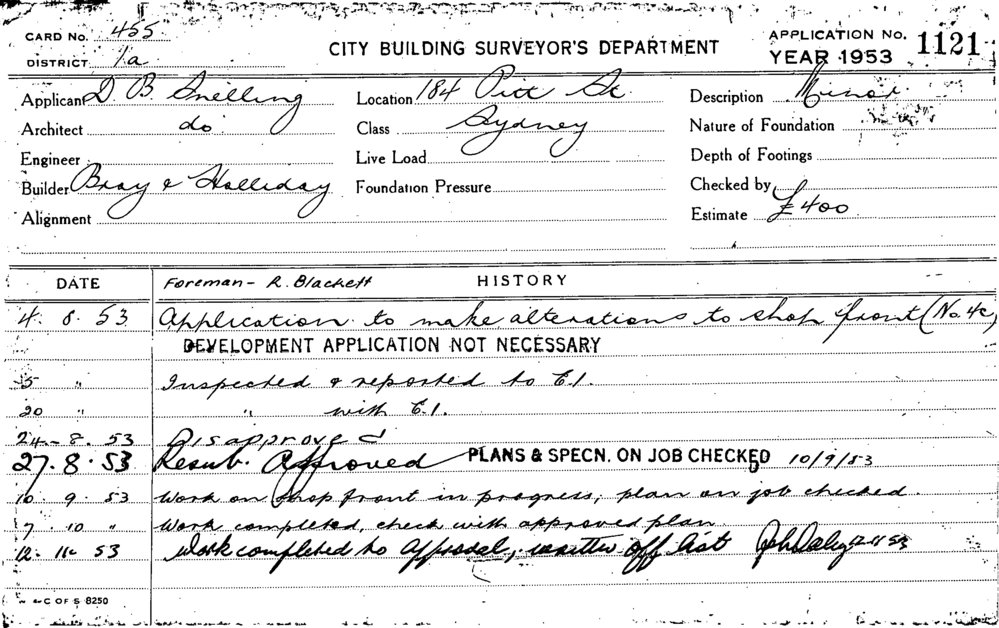 CARD NO. 455
DISTRICT 1a
CITY BUILDING SURVEYOR'S DEPARTMENT
APPLICATION NO. 1121
YEAR 1953
Applicant D. B. Snelling
Location 184 Pitt St
Description Minor
Architect do
Class Sydney
Nature of Foundation
Engineer
Live Load
Depth of Footings
Builder Bray & Halliday
Foundation Pressure
Checked by
Alignment
Estimate £400
DATE
Foreman - R. Blackett
HISTORY
4. 8. 53 Application to make alterations to shop front (No. 4c)
DEVELOPMENT APPLICATION NOT NECESSARY
5 " Inspected & reported to C.I.
20 " " with C.I.
24-8. 53 Disapproved
27. 8. 53 Resub. Approved PLANS & SPECN. ON JOB CHECKED 10/9/53
10. 9. 53 Work on shop front in progress, plan on job checked.
7. 10 " Work completed, check with approved plan
12. 11. 53 Work completed to approval, written off list
C OF S 8250